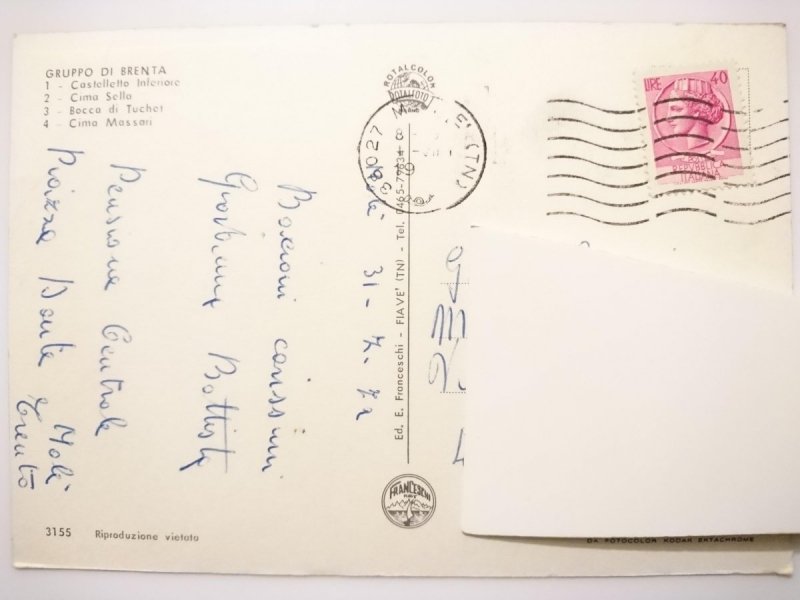 GRUPPO DI BRENTA
1 - Castelletto Inferiore
2 - Cima Sella
3 - Bocca di Tuchet
4 - Cima Massari
ROTALCOLOR
ROTALFOTO
MILANO
38027 MALE' (TN)
LIRE 40
REPUBBLICA
ITALIANA
31-7-72
Bacioni carissimi
Battista
Pensione Centrale
Piazza Dante
Trento
Ed. E. Franceschi - FIAVE' (TN) - Tel. 0465-79634
FRANCESCHI
3155 Riproduzione vietata
DA FOTOCOLOR KODAK EKTACHROME